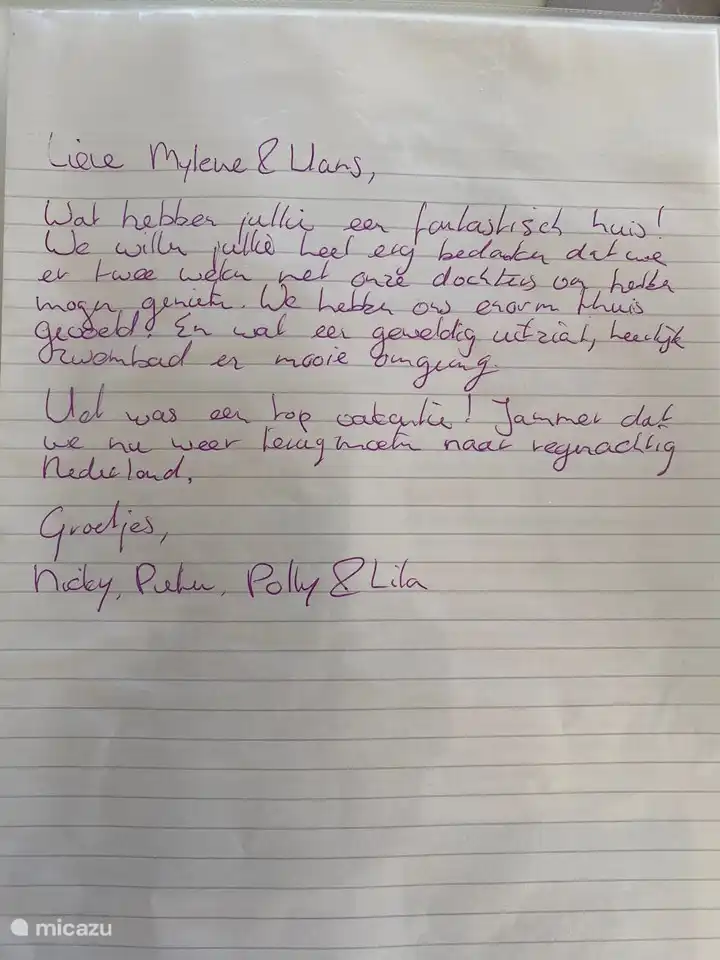 Lieve Mylene & Hans,
Wat hebben jullie een fantastisch huis!
We willen jullie heel erg bedanken dat we
er twee weken met onze dochters van hebben
mogen genieten. We hebben ons enorm thuis
gevoeld. En wat een geweldig uitzicht, heerlijk
zwembad en mooie omgeving.
Het was een top vakantie! Jammer dat
we nu weer terug moeten naar regenachtig
Nederland.
Groetjes,
Nicky, Pieter, Polly & Lila
micazu